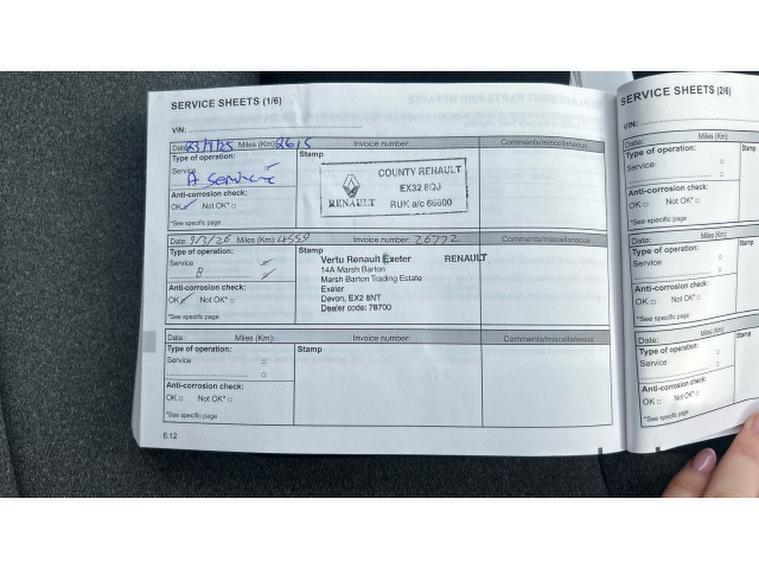 SERVICE SHEETS (1/6)
VIN:
Date: Miles (Km): 2615 Invoice number: Comments/miscellaneous
Type of operation: Stamp
Service
A Service
COUNTY RENAULT
EX32 8QJ
RENAULT RUK a/c 66600
Anti-corrosion check:
OK Not OK*
*See specific page
Date: 9/3/26 Miles (Km): 4559 Invoice number: 26772 Comments/miscellaneous
Type of operation: Stamp
Service
B
Vertu Renault Exeter RENAULT
14A Marsh Barton
Marsh Barton Trading Estate
Exeter
Devon, EX2 8NT
Dealer code: 78700
Anti-corrosion check:
OK Not OK*
*See specific page
Date: Miles (Km): Invoice number: Comments/miscellaneous
Type of operation: Stamp
Service
Anti-corrosion check:
OK Not OK*
*See specific page
6.12
SERVICE SHEETS (2/6)
VIN:
Date: Miles (Km):
Type of operation: Stamp
Service
Anti-corrosion check:
OK Not OK*
*See specific page
Date: Miles (Km):
Type of operation: Stamp
Service
Anti-corrosion check:
OK Not OK*
*See specific page
Date: Miles (Km):
Type of operation: Stamp
Service
Anti-corrosion check:
OK Not OK*
*See specific page